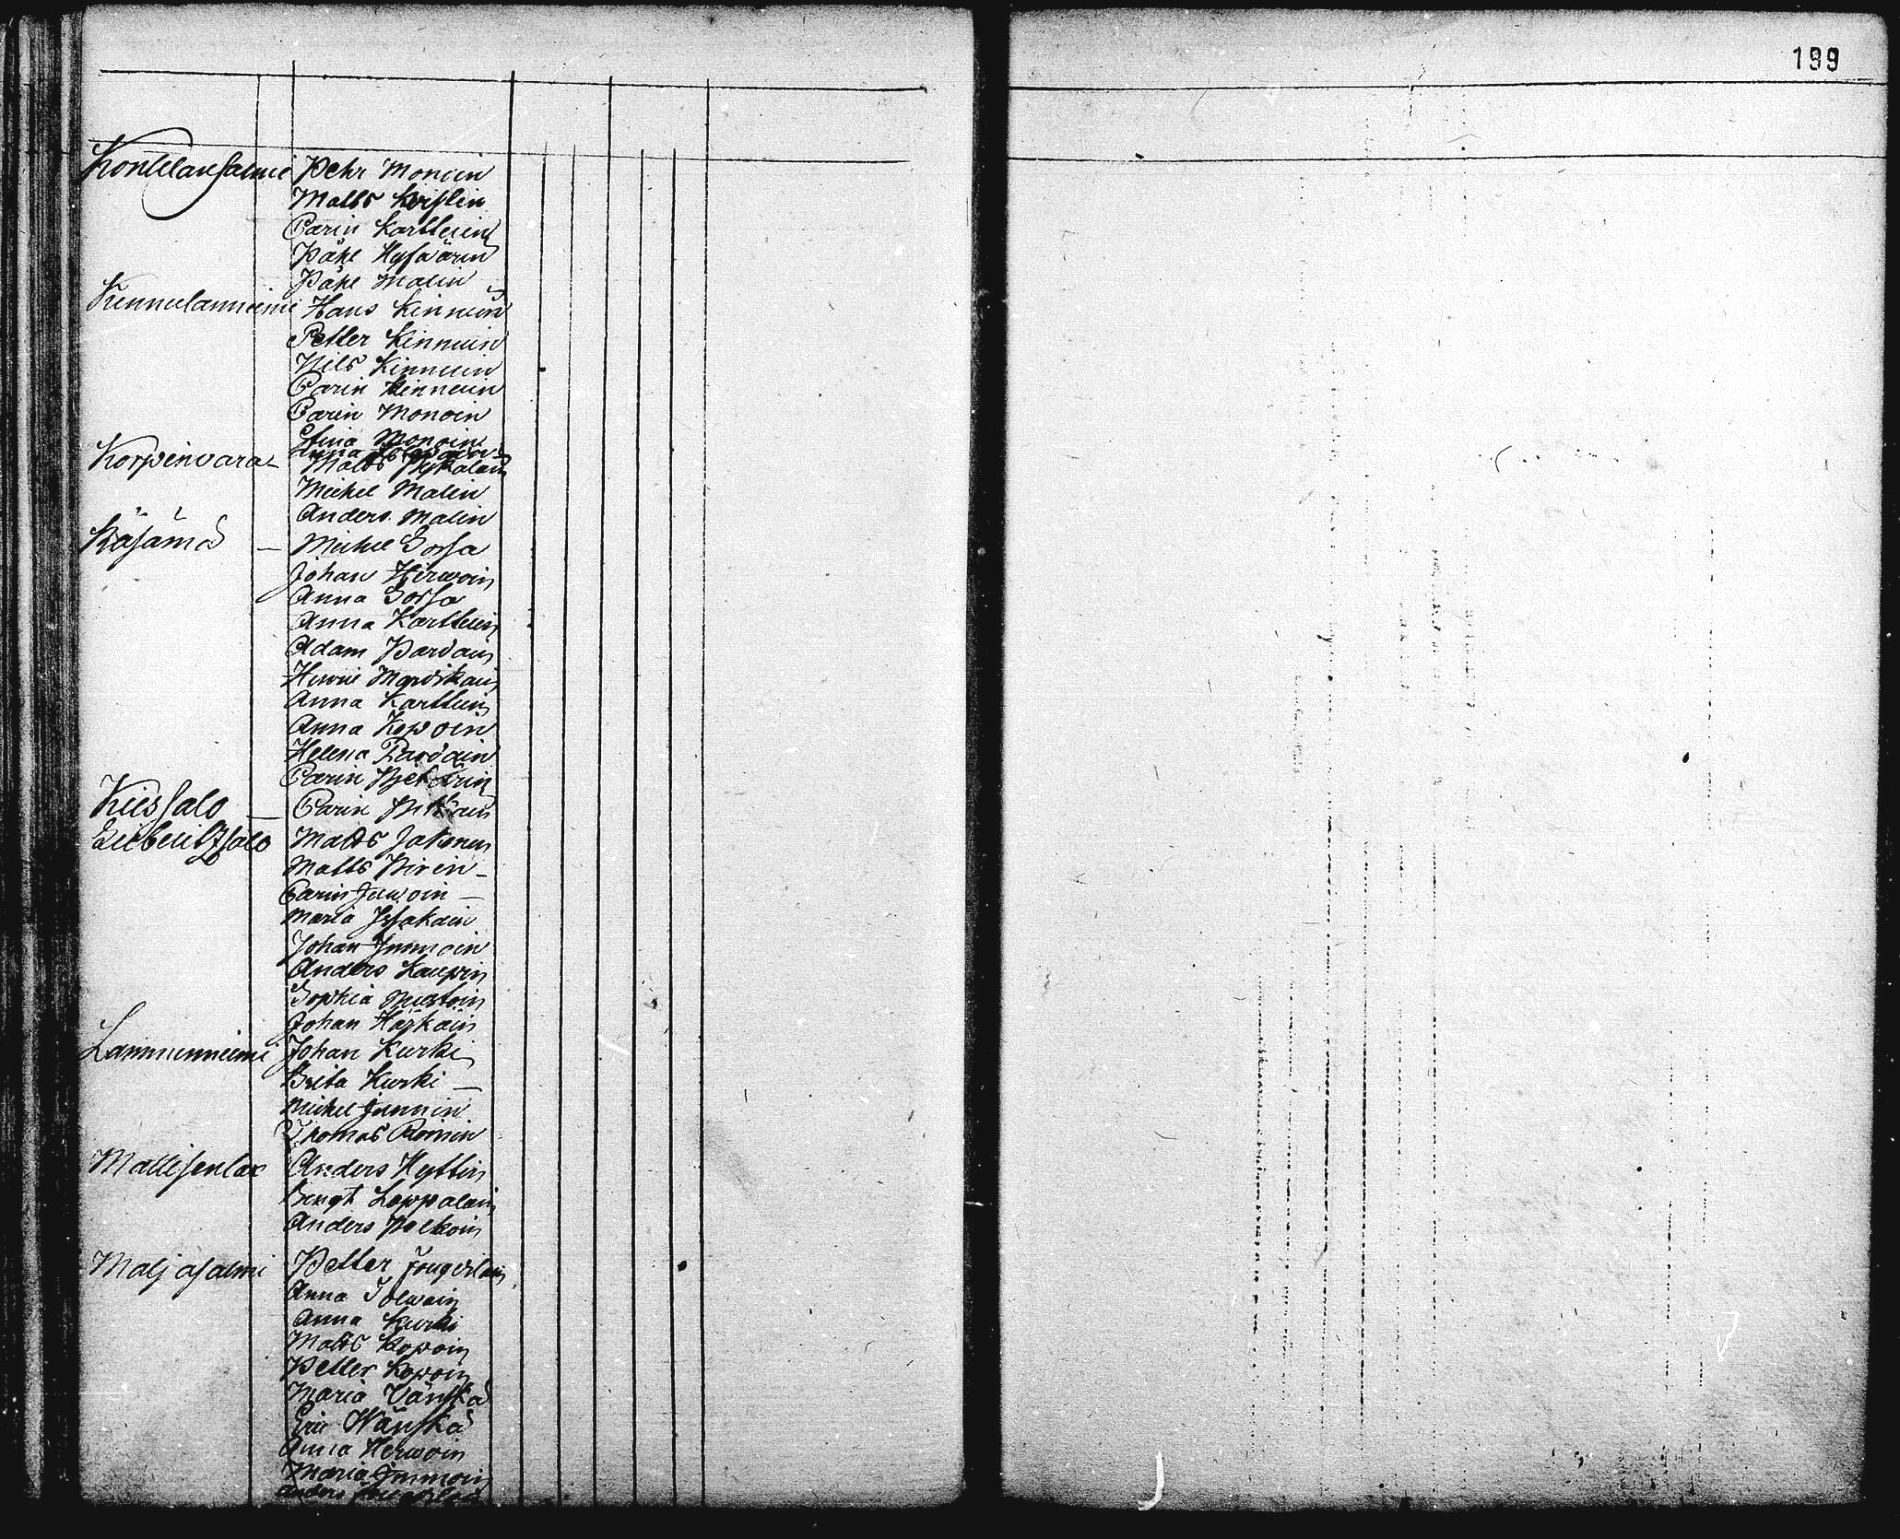 199
Kontilansalmi Pehr Monoin
Matts Krislin
Carin Karttuin
Påhl Hyfvärin
Påhl Malin
Kunnulanniemi Hans Kinnuin
Petter Kinnuin
Nils Kinnuin
Carin Kinnuin
Carin Monoin
Stina Monoin
Korpinvara Matts Pykäläin
Michel Malin
Anders Malin
Käsämä Michel Sorsa
Johan Hirwoin
Anna Sorsa
Anna Karttuin
Adam Pardain
Anna Karttuin
Anna Kopoin
Helena Pardain
Carin
Kiessalo Carin
Liebelitzsalo Matts Jakonen
Matts Pirin
Carin Juwoin
Maria Issakain
Johan Immoin
Anders Kaupin
Sophia Mustoin
Johan Häykäin
Lamminniemi Johan Kurki
Brita Kurki
Michel Junnin
Thomas Roinin
Mattisenlax Anders Hyttin
Bengt Loppalain
Anders Polkoin
Maljasalmi Petter
Anna Tolwain
Anna Kurki
Matts Kopoin
Petter Kopoin
Maria Vänskä
Eric Wänskä
Anna Herwoin
Maria Immoin
Anders